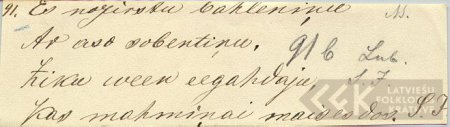 91. Es nozirstu bahleniņu N.
Ar aso sobentiņu, 91b Lub.
Ziku ween eegahdaju, S. J
Kas mahmiņai maisesdos. S. J
LATVIEŠU
FOLKLORAS
KRĀTUVE